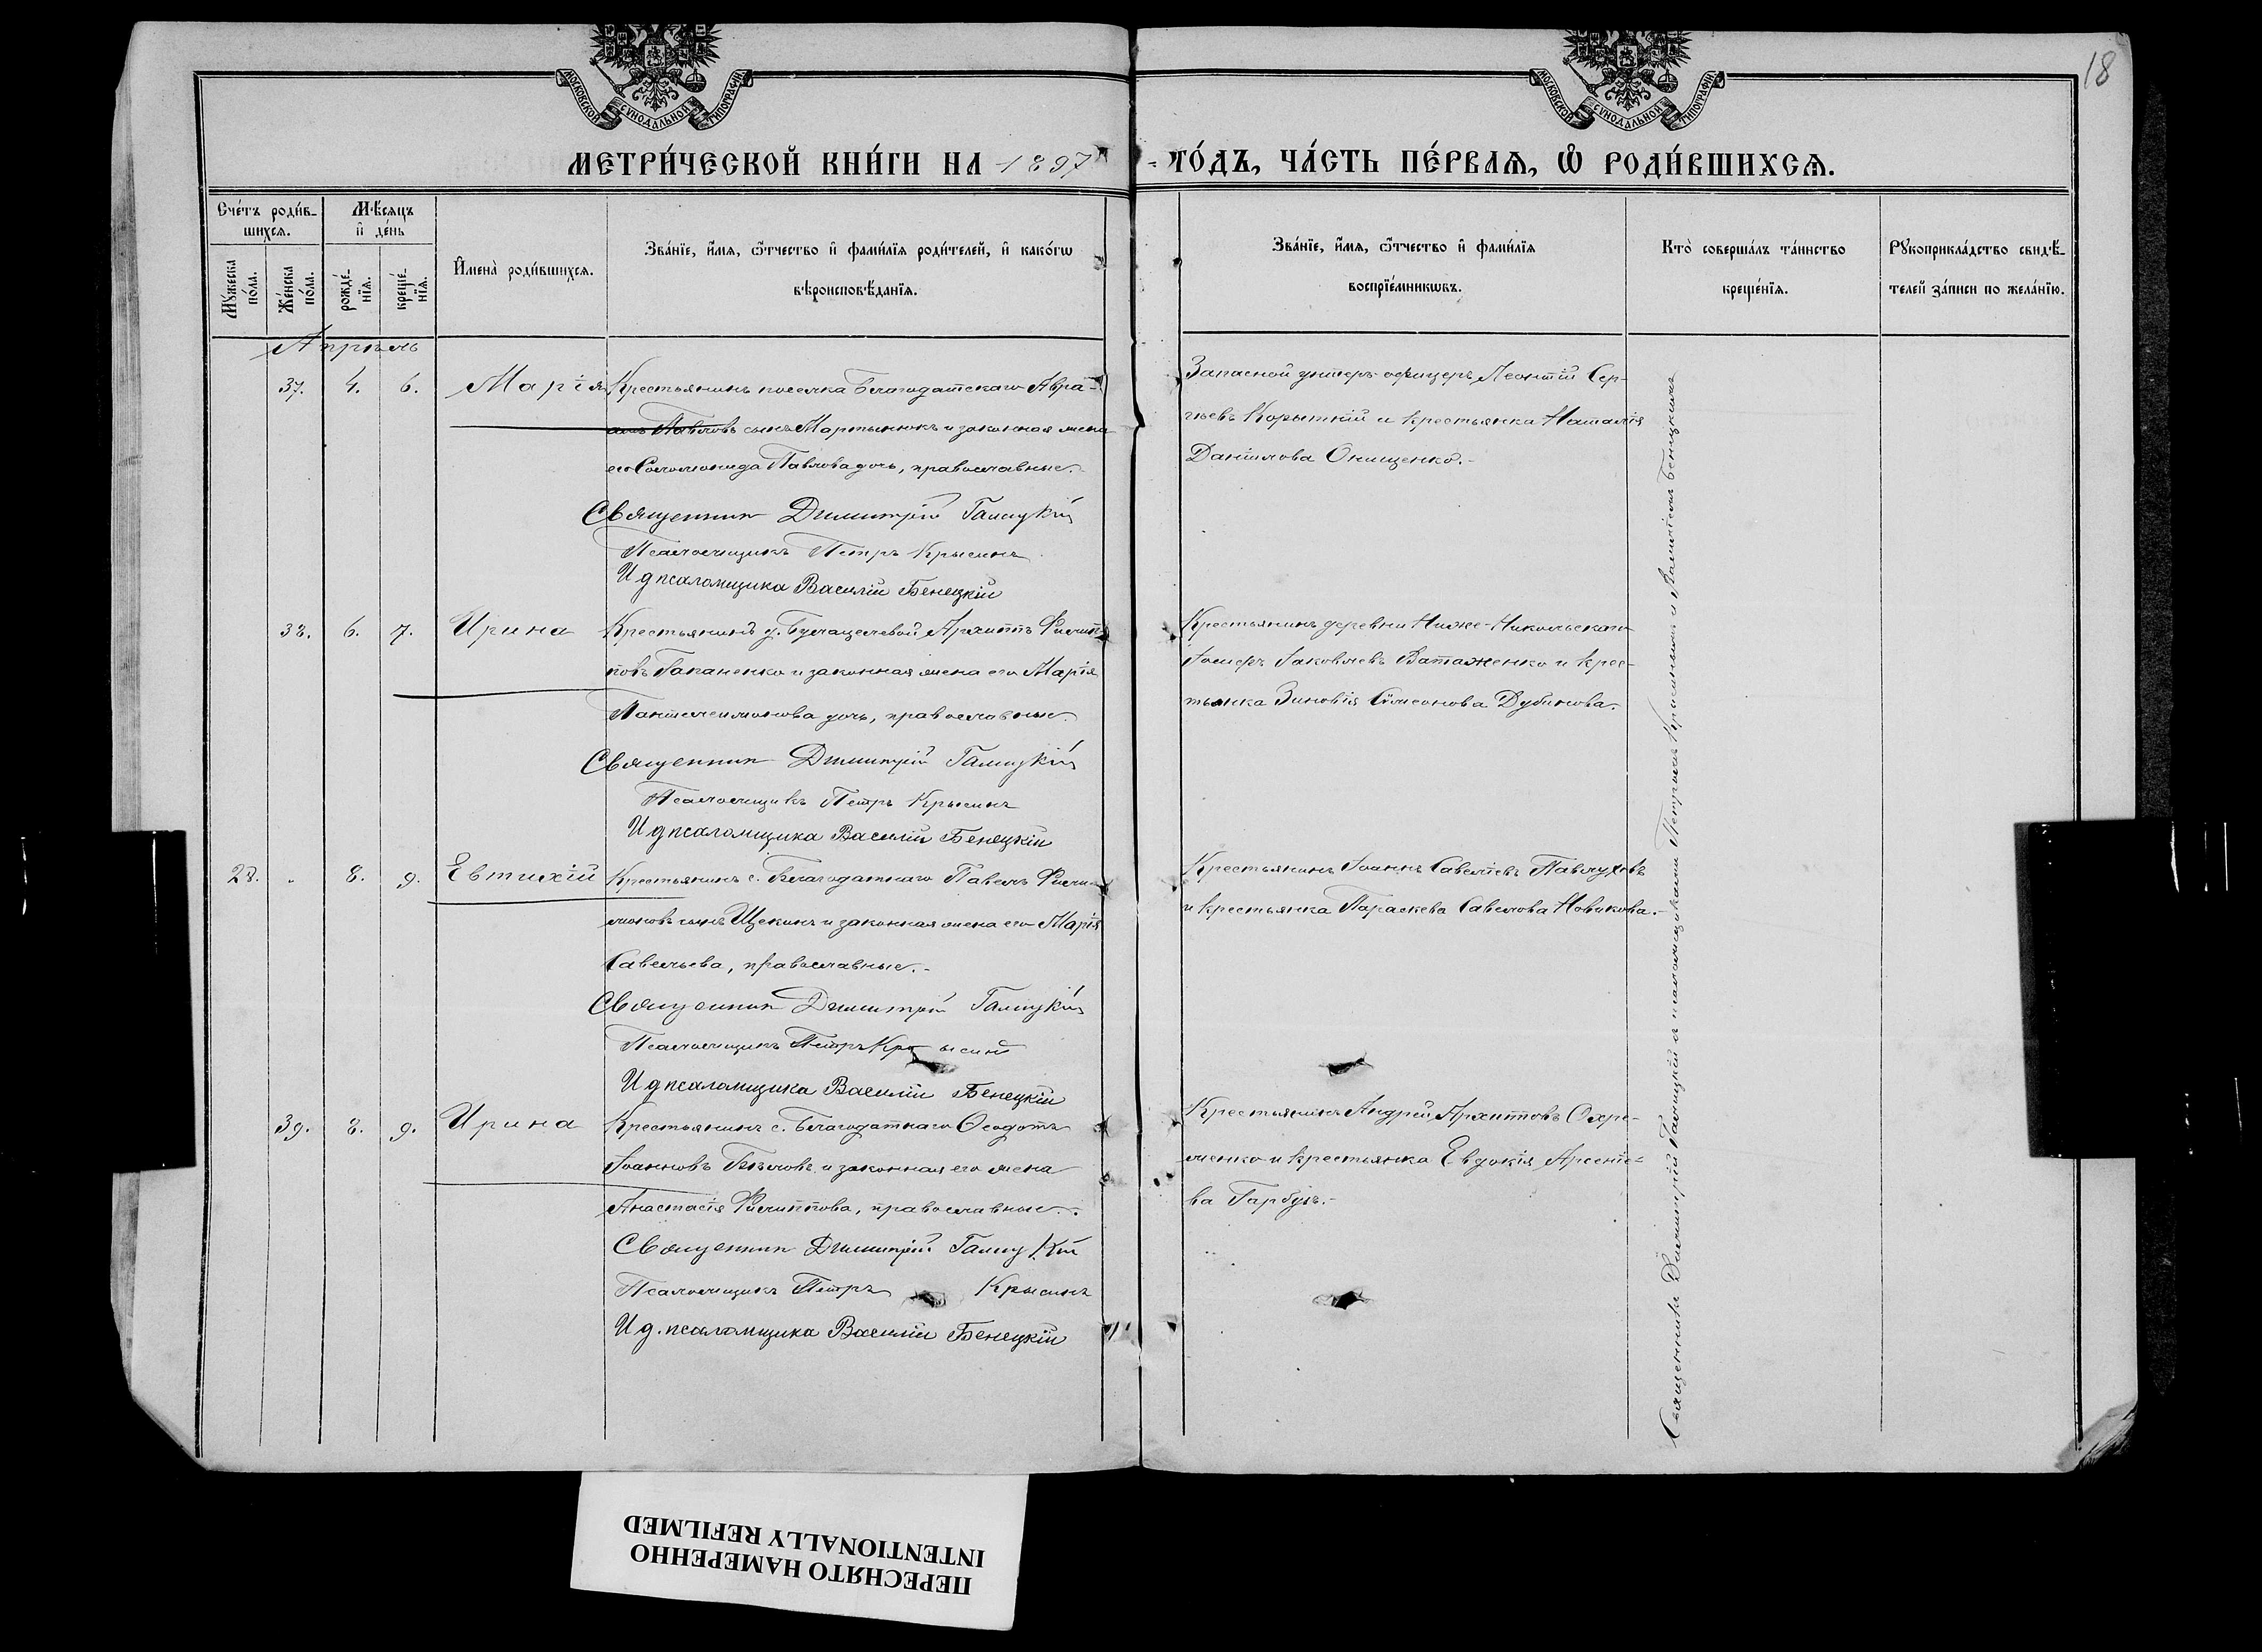 МОСКОВСКОЙ СУНОДАЛЬНОЙ ТИПОГРАФІИ
МОСКОВСКОЙ СУНОДАЛЬНОЙ ТИПОГРАФІИ
18
МЕТРИ́ЧЕСКОЙ КНИ́ГИ НА 1897
ГО́ДЪ, ЧА́СТЬ ПЕ́РВАѦ, Ѡ РОДИ́ВШИХСѦ.
Сче́тъ роди́в-
шихсѧ.
Мꙋ́жеска
по́ла.
Же́нска
по́ла.
Мѣ́сѧцъ
и҆ де́нь
рожде́-
нїѧ.
креще́-
нїѧ.
И҆мена̀ роди́вшихсѧ.
Зва́нїе, и҆́мѧ, ѻ҆́тчество и҆ фами́лїѧ роди́телей, и҆ како́гѡ
вѣроисповѣ́данїѧ.
Зва́нїе, и҆́мѧ, ѻ҆́тчество и҆ фами́лїѧ
воспрїе́мникѡвъ.
Кто̀ соверша́лъ та́инство
креще́нїѧ.
Рꙋкоприкла́дство свидѣ́-
телей за́писи по жела́нїю.
Апрѣль
37. 4. 6. Марія
Крестьянинъ поселка Благодатскаго Авра-
амъ Павловъ сынъ Мартынюкъ и законная жена
его Соломонида Павлова дочь, православные.
Священник Димитрій Галицкій
Псаломщикъ Петръ Крысинъ
И д псаломщика Василій Бенецкій
Запасной унтеръ-офицеръ Леонтій Сер-
гѣевъ Корытній и крестьянка Наталія
Даніилова Онищенко.-
38. 6. 7. Ирина
Крестьянинъ д. Архиппъ Филип-
повъ Гапаненко и законная жена его Марія
Пантелеимонова дочь, православные.
Священник Димитрій Галицкій
Псаломщикъ Петръ Крысинъ
И д псаломщика Василій Бенецкій
Крестьянинъ деревни Ниже-Никольскаго
Іосифъ Іаковлевъ Ватаженко и крес-
тьянка Зиновія Симеонова Дубинова.
28. „ 8. 9. Евтихій
Крестьянинъ с. Благодатнаго Павелъ Фили-
моновъ сынъ Щекинъ и законная жена его Марія
Савельева, православные.-
Священник Димитрій Галицкій
Псаломщикъ Петръ Крысинъ
И д псаломщика Василій Бенецкій
Крестьянинъ Іоаннъ Савеліевъ Павлуховъ
и крестьянка Параскева Савелова Новикова.-
39. 8. 9. Ирина
Крестьянинъ с. Благодатнаго Ѳеодотъ
Іоанновъ Бѣловъ и законная его жена
Анастасія Филиппова, православные.-
Священник Димитрій Галицкій
Псаломщикъ Петръ Крысинъ
И д. псаломщика Василій Бенецкій
Крестьянинъ Андрей Архипповъ Охре-
менко и крестьянка Евдокія Арсеніе-
ва Гарбузъ.-
Священникъ Димитрій Галицкій съ псаломщиками Петромъ Крысинымъ и Василіемъ Бенецкимъ
ПЕРЕСНЯТО НАМЕРЕННО
INTENTIONALLY REFILMED